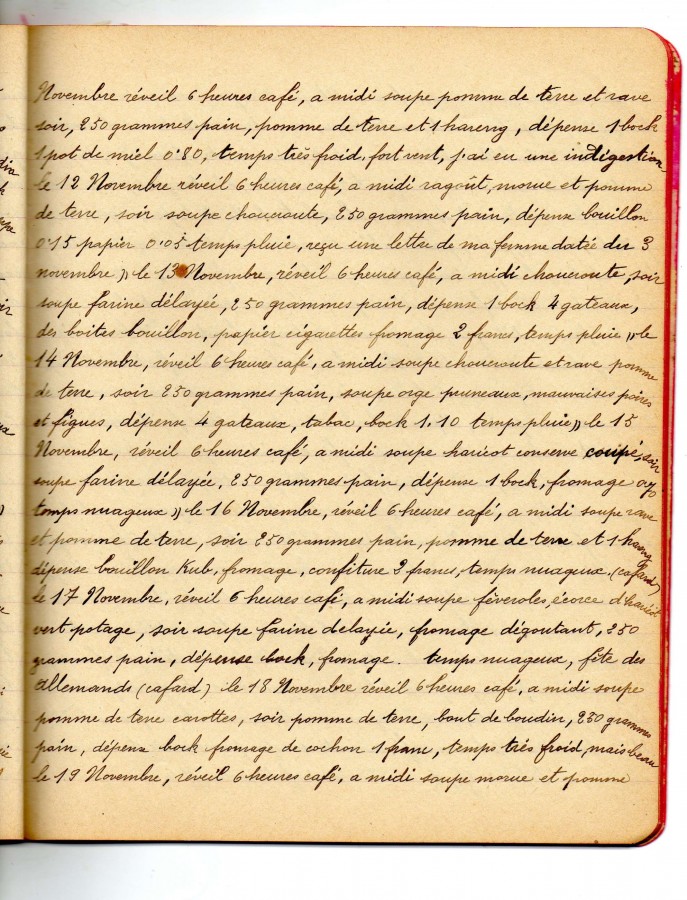 Novembre réveil 6 heures café, a midi soupe pomme de terre et rave
soir, 250 grammes pain, pomme de terre et 1 hareng, dépense 1 bock
1 pot de miel 0.80, temps très froid, fort vent, j'ai eu une indigestion
le 12 Novembre réveil 6 heures café, a midi ragoût, morue et pomme
de terre, soir soupe choucroute, 250 grammes pain, dépense bouillon
0.15 papier 0.05 temps pluie, reçu une lettre de ma femme datée du 3
novembre » le 13 Novembre, réveil 6 heures café, a midi choucroute, soir
soupe farine délayée, 250 grammes pain, dépense 1 bock 4 gateaux,
des boites bouillon, papier cigarettes fromage 2 francs, temps pluie » le
14 Novembre, réveil 6 heures café, a midi soupe choucroute et rave pomme
de terre, soir 250 grammes pain, soupe orge pruneaux, mauvaises poires
et figues, dépense 4 gateaux, tabac, bock 1.10 temps pluie » le 15
Novembre, réveil 6 heures café, a midi soupe haricot conserve coupé, soir
soupe farine délayée, 250 grammes pain, dépense 1 bock, fromage
temps nuageux » le 16 Novembre, réveil 6 heures café, a midi soupe rave
et pomme de terre, soir 250 grammes pain, pomme de terre et 1 hareng
dépense bouillon Kub, fromage, confiture 2 francs, temps nuageux. (cafard)
le 17 Novembre, réveil 6 heures café, a midi soupe fèveroles, écorce d'haricot
vert potage, soir soupe farine delayée, fromage dégoutant, 250
grammes pain, dépense bock, fromage. temps nuageux, fête des
allemands (cafard) le 18 Novembre réveil 6 heures café, a midi soupe
pomme de terre carottes, soir pomme de terre, bout de boudin, 250 grammes
pain, dépense bock fromage de cochon 1 franc, temps très froid, mais beau
le 19 Novembre, réveil 6 heures café, a midi soupe morue et pomme